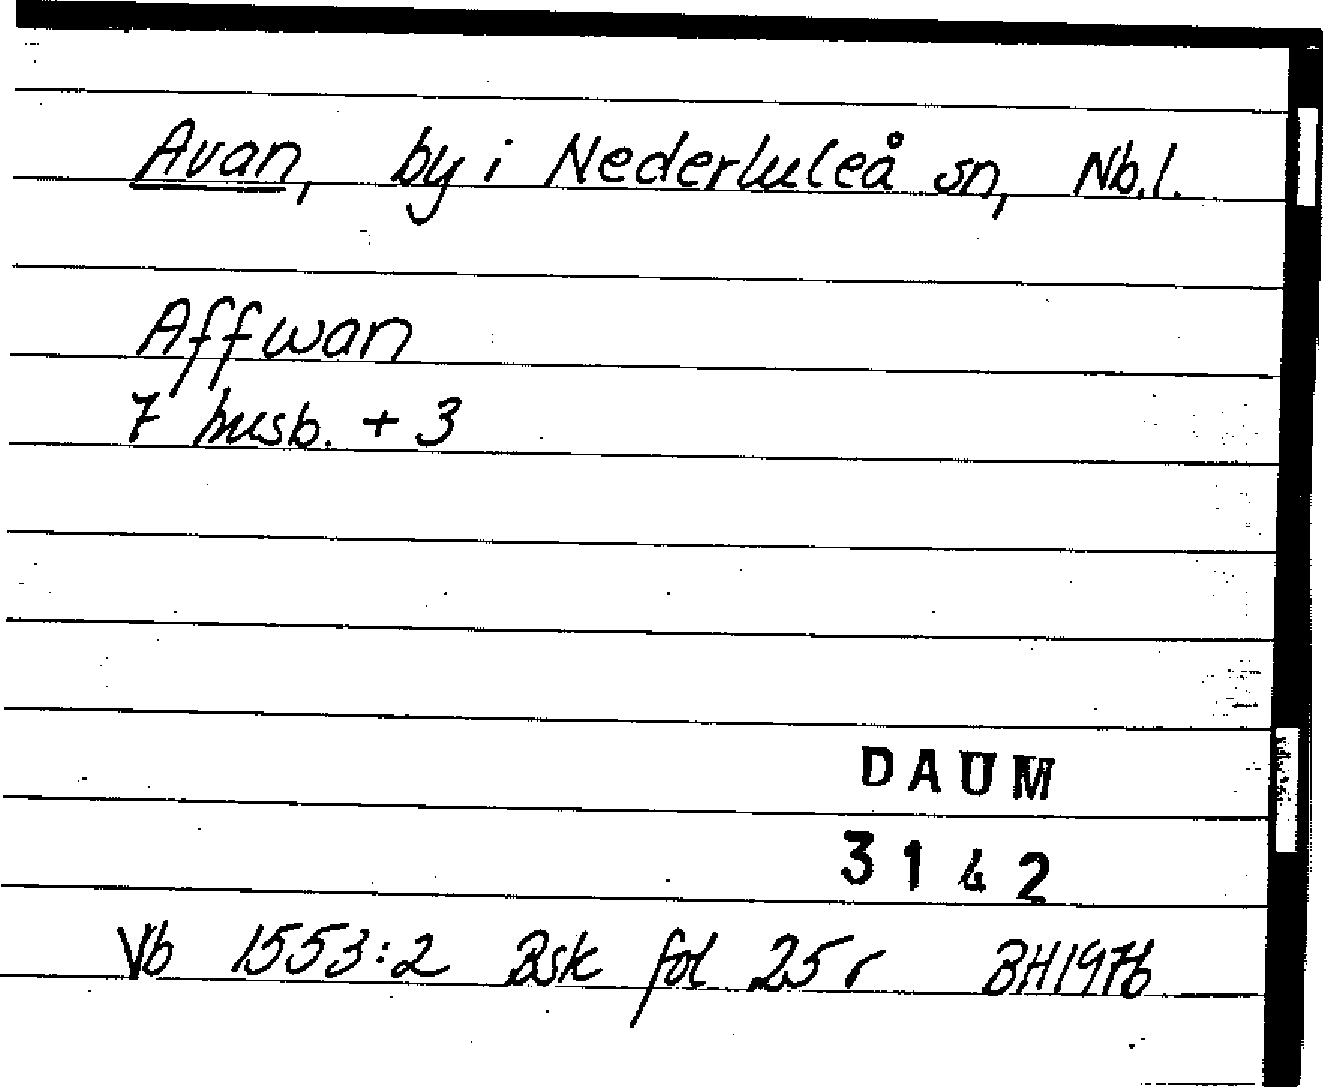 Avan, by i Nederluleå sn, Nb.l.
Affwan
7 husb. + 3
DAUM
3142
Vb 1553:2 Bsk fol 25 r BH1976